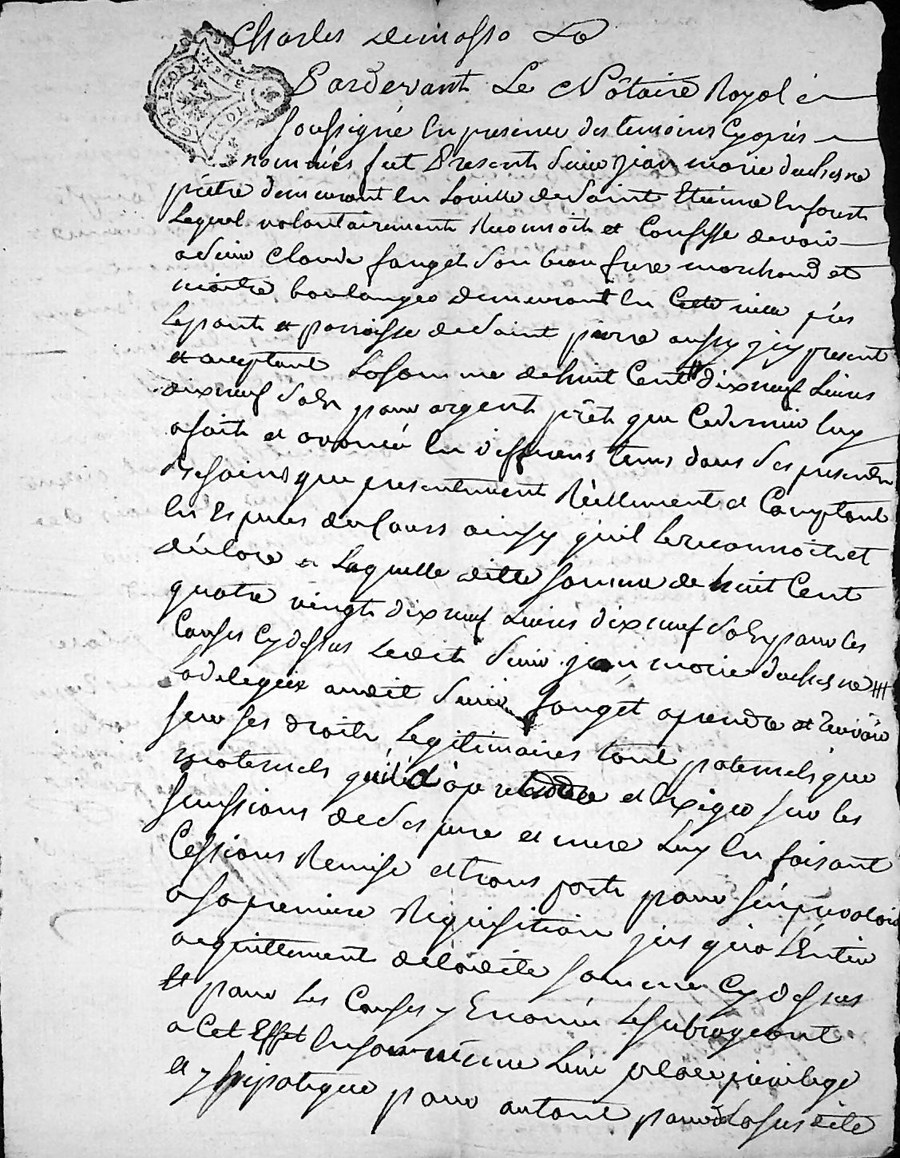 Charles
Pardevant Le Nôtaire Royal
soussigné En presence des temoins Cy aprés
nommés fut Present Sieur jean marie duchesne
prêtre demeurant En La ville de Saint Etienne En forest
Lequel volontairement Reconnoit et Confesse devoir
a Sieur Claude fanget Son beau frere marchand et
maitre boulanger demeurant En Cette ville prés
Le pont et parroisse de Saint pierre aussy jcy present
et acceptant La Somme de huit Cent dix neuf Livres
dix neuf Sols pour argent prêt que Ce dernier luy
a fait et avancé En differens tems dans Ses presents
Besoins que presentement Réellement et Comptant
En Especes de Cours ainsy qu'il Le reconnoit et
déclare et Laquelle ditte Somme de huit Cent
quatre vingt dix neuf Livres dix neuf Sols pour les
Causes Cy dessus Ledit Sieur jean marie duchesne
La delegué audit Sieur fanget a prendre et Recevoir
sur ses droits Legitimaires tant paternels que
maternels qu'il a à prendre et Exiger sur les
successions de Ses pere et mere Luy En faisant
Cessions Remise et transport pour s'en prevaloir
a Sa premiere Requisition jus qu'a L'Entier
acquittement de Ladite Somme Cy dessus
Et pour Les Causes y Enoncé Le subrogeant
a Cet Effet En son même Lieu place privilege
et hipoteque pour autant pour La susdite